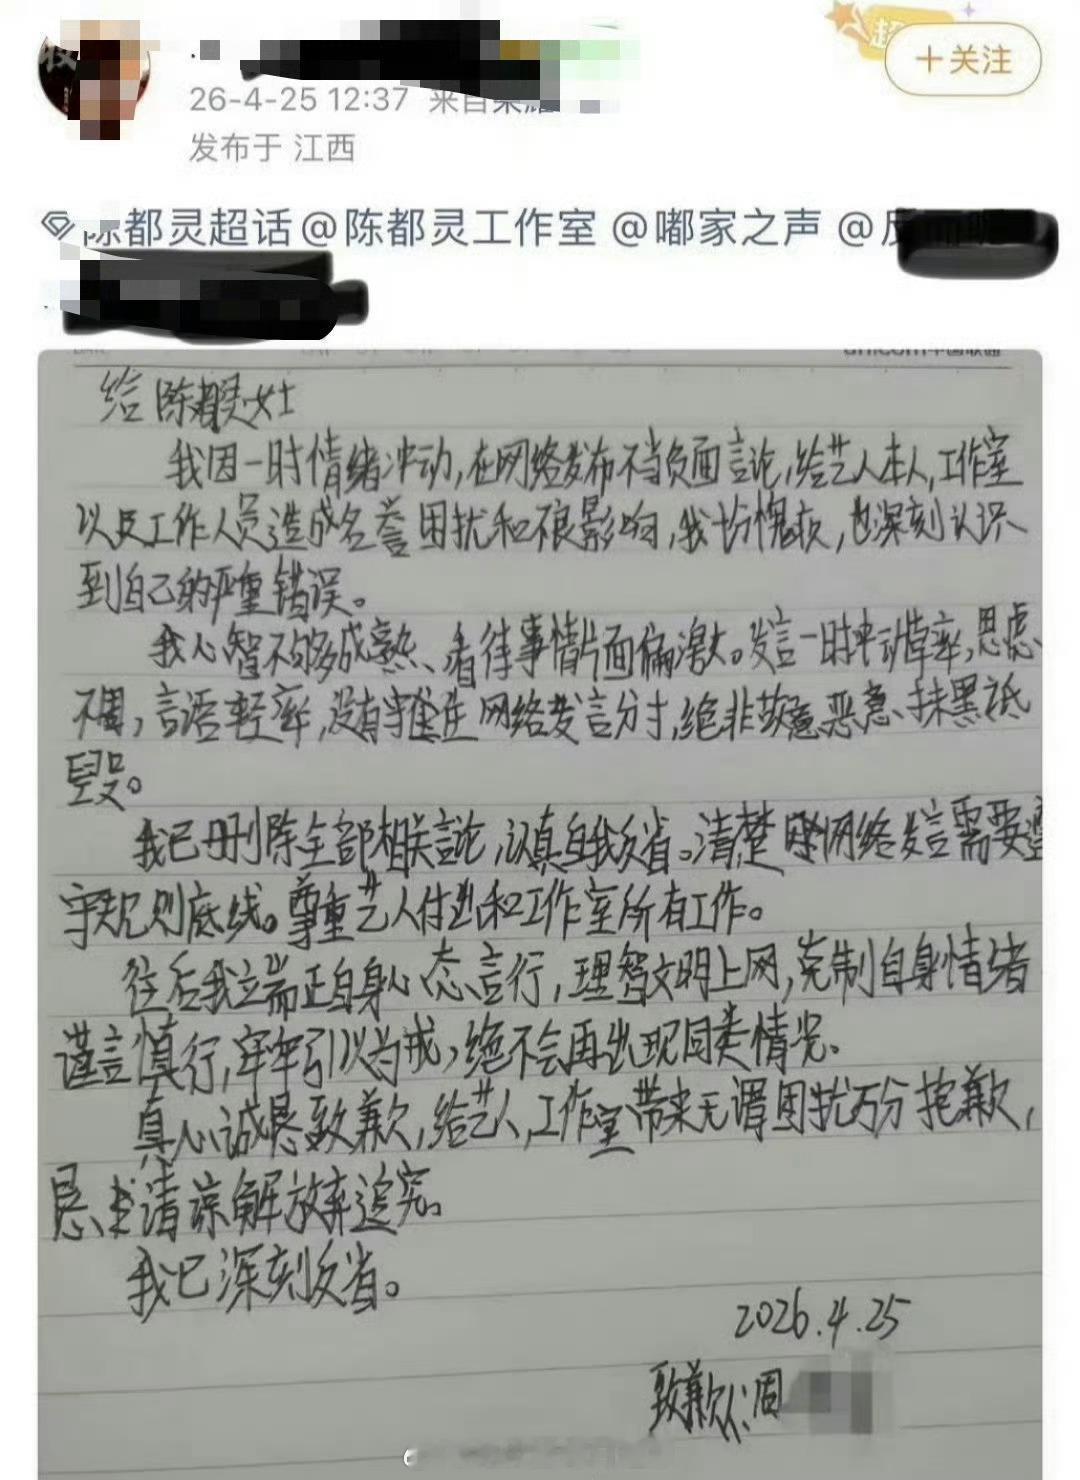 超
+关注
26-4-25 12:37 来自荣耀
发布于 江西
陈都灵超话@陈都灵工作室 @嘟家之声 @反
unicom中国联通
给陈都灵女士
我因一时情绪冲动,在网络发布不当负面言论,给艺人本人,工作室
以及工作人员造成名誉困扰和不良影响,我十分愧疚,也深刻认识
到自己的严重错误。
我心智不够成熟、看待事情片面偏激。发言一时冲动草率,思虑
不周,言语轻率,没有守住网络发言分寸,绝非故意恶意、抹黑诋
毁。
我已删除全部相关言论,认真自我反省。清楚网络发言需要遵
守规则底线。尊重艺人付出和工作室所有工作。
往后我立端正自身心态言行,理智文明上网,克制自身情绪
谨言慎行,牢牢引以为戒,绝不会再出现同类情况。
真心诚恳致歉,给艺人,工作室带来无谓困扰万分抱歉,
恳请谅解放弃追究。
我已深刻反省。
2026.4.25
致歉人:周